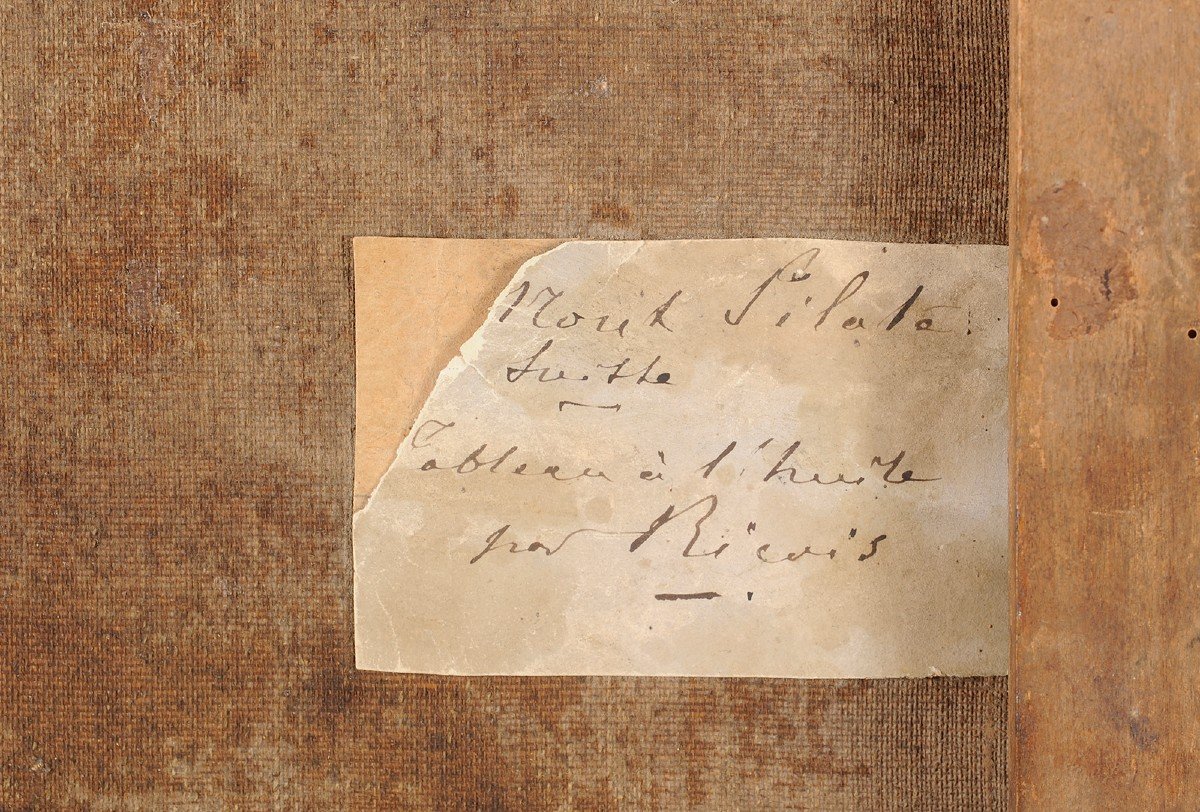 Mont Pilate.
Suisse
Tableau à l'huile
par Ricois